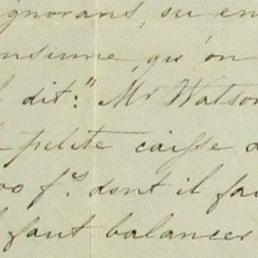 ignorans, ou en
nsume, qu'on
dit: "Mr Watson
petite caisse d
00 fs. dont il fau
faut balancer